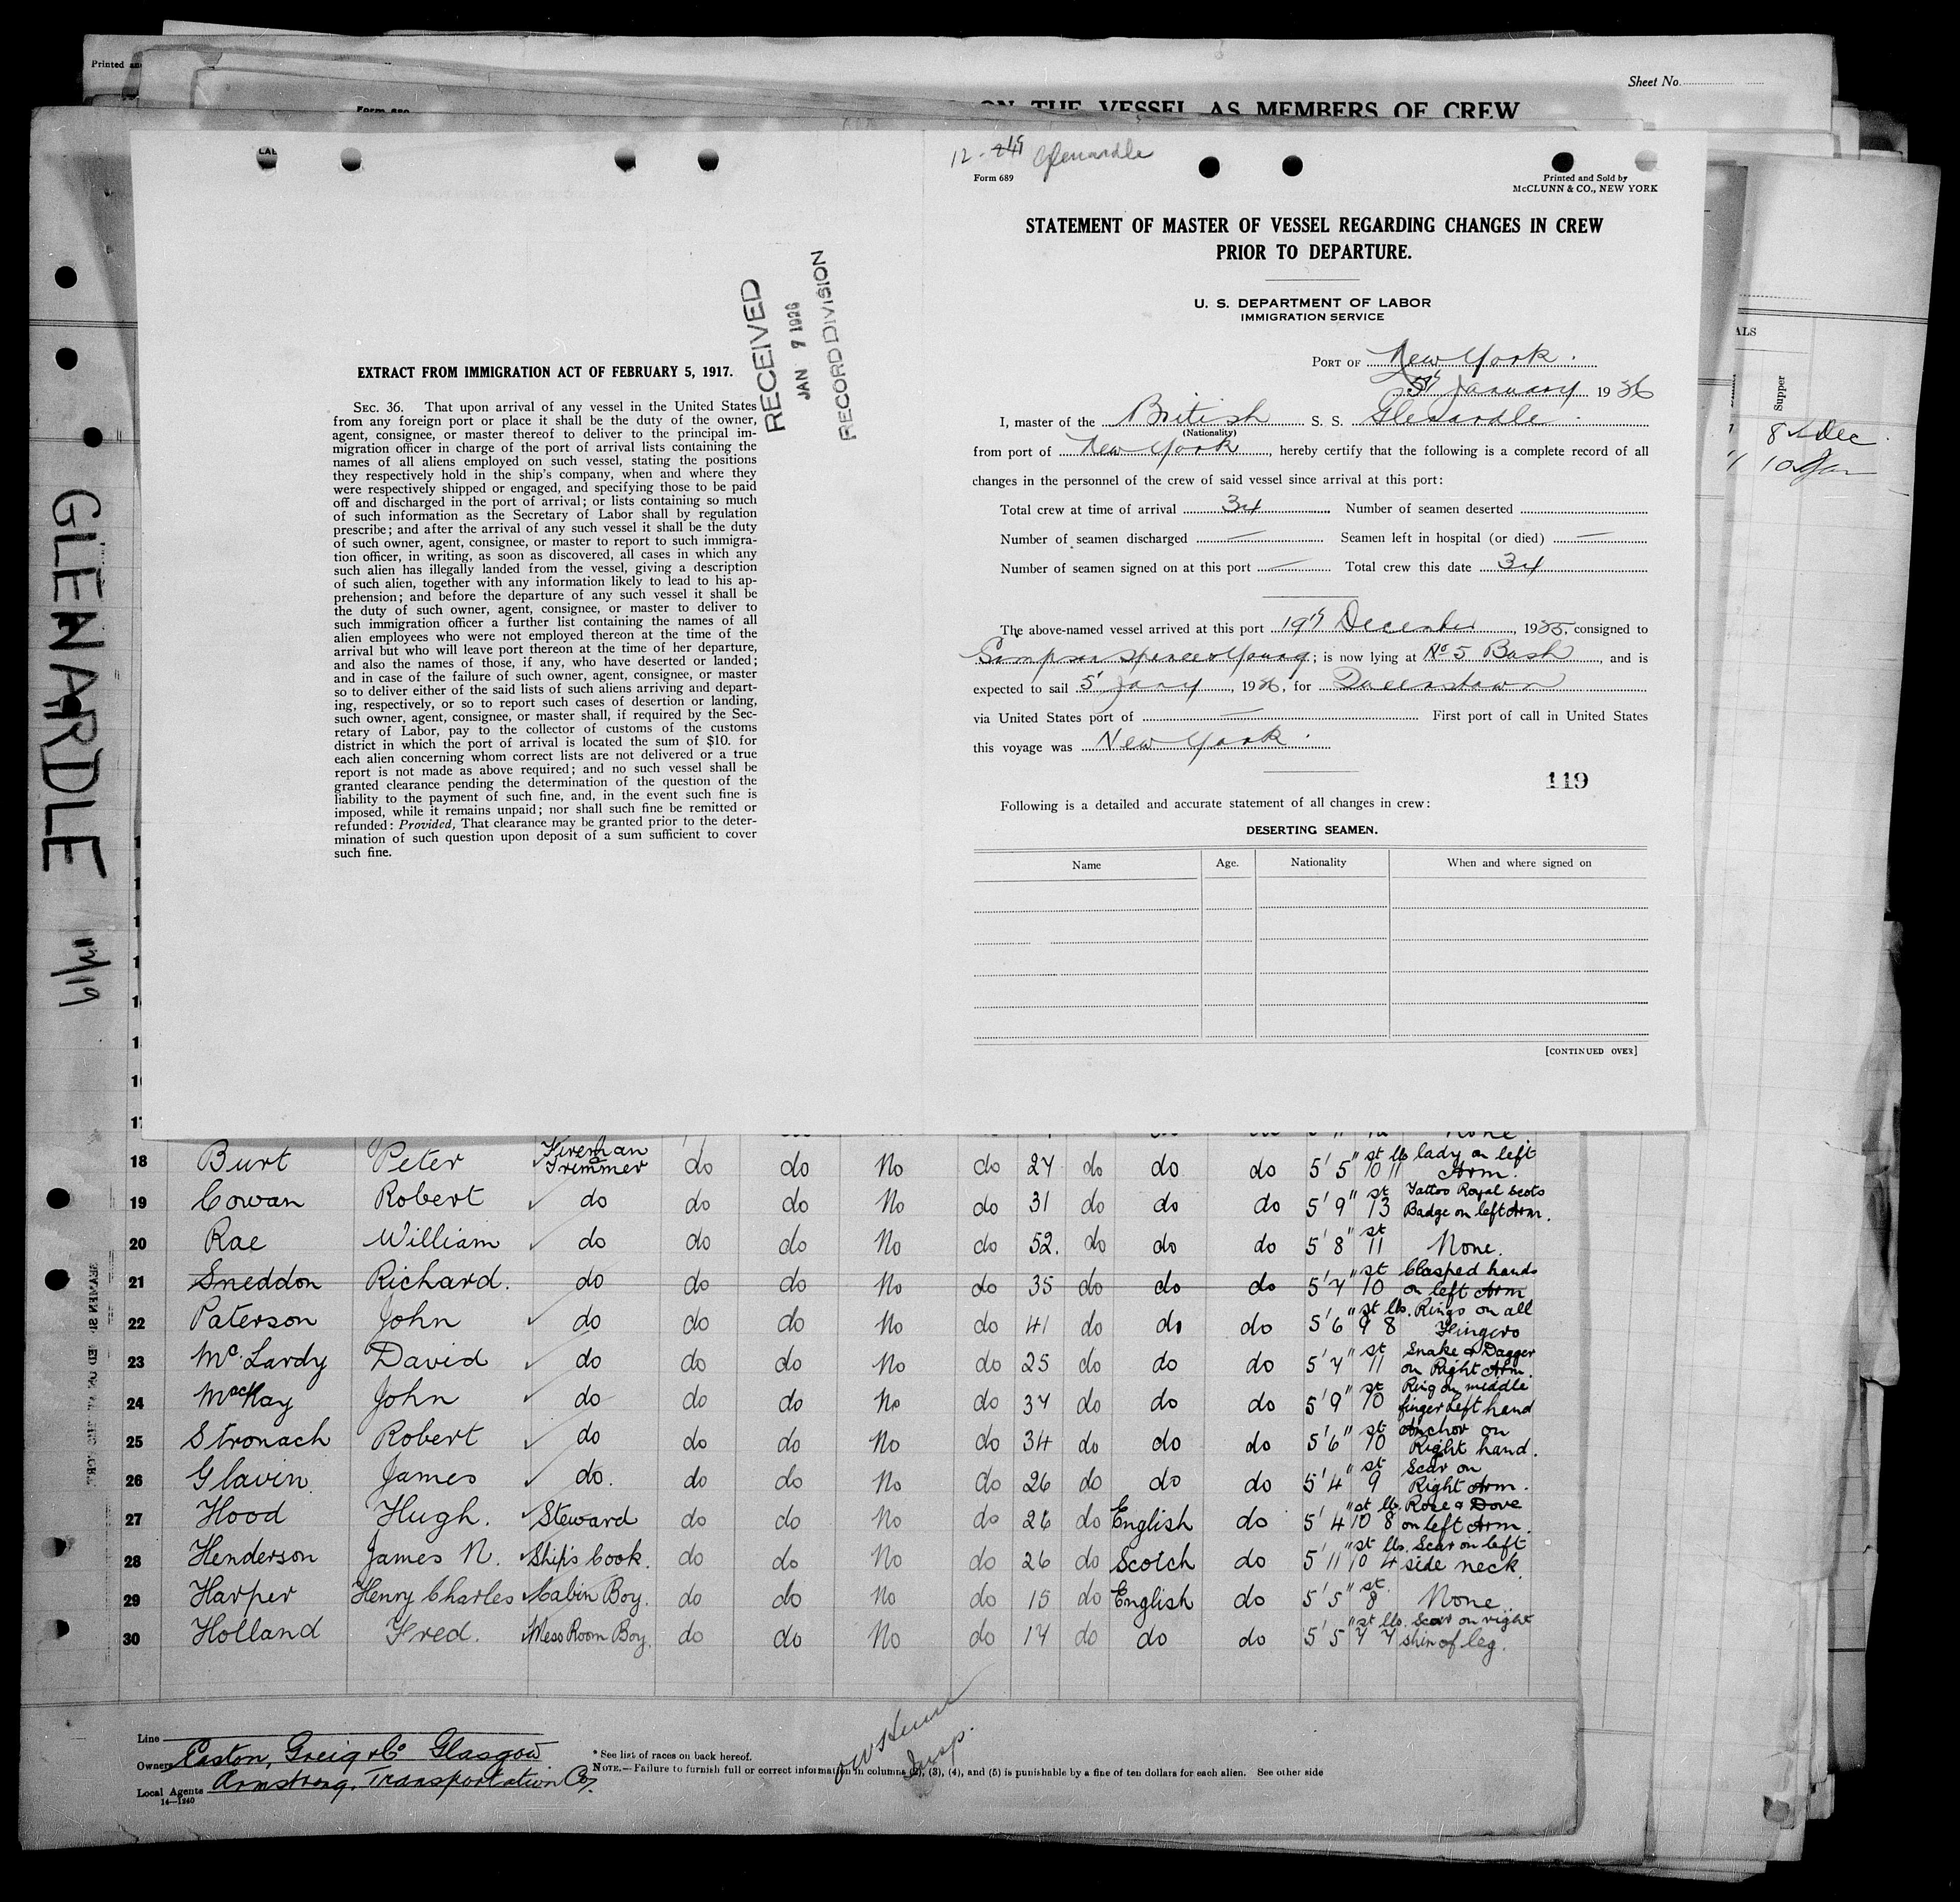 Printed an
Sheet No.
Form 689
ON THE VESSEL AS MEMBERS OF CREW
GLENARDLE 12/19
LAB
RECEIVED
JAN 7 1926
RECORD DIVISION
EXTRACT FROM IMMIGRATION ACT OF FEBRUARY 5, 1917.
SEC. 36. That upon arrival of any vessel in the United States
from any foreign port or place it shall be the duty of the owner,
agent, consignee, or master thereof to deliver to the principal im-
migration officer in charge of the port of arrival lists containing the
names of all aliens employed on such vessel, stating the positions
they respectively hold in the ship's company, when and where they
were respectively shipped or engaged, and specifying those to be paid
off and discharged in the port of arrival; or lists containing so much
of such information as the Secretary of Labor shall by regulation
prescribe; and after the arrival of any such vessel it shall be the duty
of such owner, agent, consignee, or master to report to such immigra-
tion officer, in writing, as soon as discovered, all cases in which any
such alien has illegally landed from the vessel, giving a description
of such alien, together with any information likely to lead to his ap-
prehension; and before the departure of any such vessel it shall be
the duty of such owner, agent, consignee, or master to deliver to
such immigration officer a further list containing the names of all
alien employees who were not employed thereon at the time of the
arrival but who will leave port thereon at the time of her departure,
and also the names of those, if any, who have deserted or landed;
and in case of the failure of such owner, agent, consignee, or master
so to deliver either of the said lists of such aliens arriving and depart-
ing, respectively, or so to report such cases of desertion or landing,
such owner, agent, consignee, or master shall, if required by the Sec-
retary of Labor, pay to the collector of customs of the customs
district in which the port of arrival is located the sum of $10. for
each alien concerning whom correct lists are not delivered or a true
report is not made as above required; and no such vessel shall be
granted clearance pending the determination of the question of the
liability to the payment of such fine, and, in the event such fine is
imposed, while it remains unpaid; nor shall such fine be remitted or
refunded: Provided, That clearance may be granted prior to the deter-
mination of such question upon deposit of a sum sufficient to cover
such fine.
12 - Glenardle
Form 689
Printed and Sold by
McCLUNN & CO., NEW YORK
STATEMENT OF MASTER OF VESSEL REGARDING CHANGES IN CREW
PRIOR TO DEPARTURE.
U. S. DEPARTMENT OF LABOR
IMMIGRATION SERVICE
PORT OF New York.
5th January 1926
I, master of the British S. S. Glenardle.
(Nationality)
from port of New York, hereby certify that the following is a complete record of all
changes in the personnel of the crew of said vessel since arrival at this port:
Total crew at time of arrival 34 Number of seamen deserted
Number of seamen discharged — Seamen left in hospital (or died) —
Number of seamen signed on at this port — Total crew this date 34
The above-named vessel arrived at this port 19th December, 1925, consigned to
Simpson Spence & Young; is now lying at No 5 Bush, and is
expected to sail 5' Jany, 1926, for Queenstown
via United States port of — First port of call in United States
this voyage was New York.
119
Following is a detailed and accurate statement of all changes in crew:
DESERTING SEAMEN.
Name Age. Nationality When and where signed on
[CONTINUED OVER]
ALS
Supper
8 Dec
10 Jan
None.
18 Burt Peter Fireman & Trimmer do do No do 27 do do do 5' 5" 10 st 11 lb lady on left Arm.
19 Cowan Robert do do do No do 31 do do do 5' 9" 13 st Tattoo Royal Scots Badge on left Arm.
20 Rae William do do do No do 52. do do do 5' 8" 11 st None.
21 Sneddon Richard. do do do No do 35 do do do 5' 7" 10 st Clasped hands on left Arm
22 Paterson John do do do No do 41 do do do 5' 6" 9 st 8 lb. Rings on all Fingers
23 Mc.Lardy David do do do No do 25 do do do 5' 7" 11 st Snake & Dagger on Right Arm.
24 MacKay John do do do No do 37 do do do 5' 9" 10 st Ring on middle finger Left hand
25 Stronach Robert do do do No do 34 do do do 5' 6" 10 st Anchor on Right hand.
26 Glavin. James do. do do No do 26 do do do 5' 4" 9 st Scar on Right Arm.
27 Hood Hugh. Steward do do No do 26 do English do 5' 4" 10 st 8 lb. Rose & Dove on left Arm.
28 Henderson James N. Ship's Cook. do do No do 26 do Scotch do 5' 11" 10 st 4 lb. Scar on left side neck.
29 Harper Henry Charles Cabin Boy. do do No do 15 do English do 5' 5" 8 st. None.
30 Holland Fred. Mess Room Boy. do do No do 17 do do do 5' 5" 7 st 7 lb. Scar on right shin of leg.
Line
Owners Easton, Greig & Co Glasgow
Local Agents Armstrong, Transportation Co.
14—1240
* See list of races on back hereof.
NOTE.—Failure to furnish full or correct information in columns (2), (3), (4), and (5) is punishable by a fine of ten dollars for each alien. See other side
Insp.